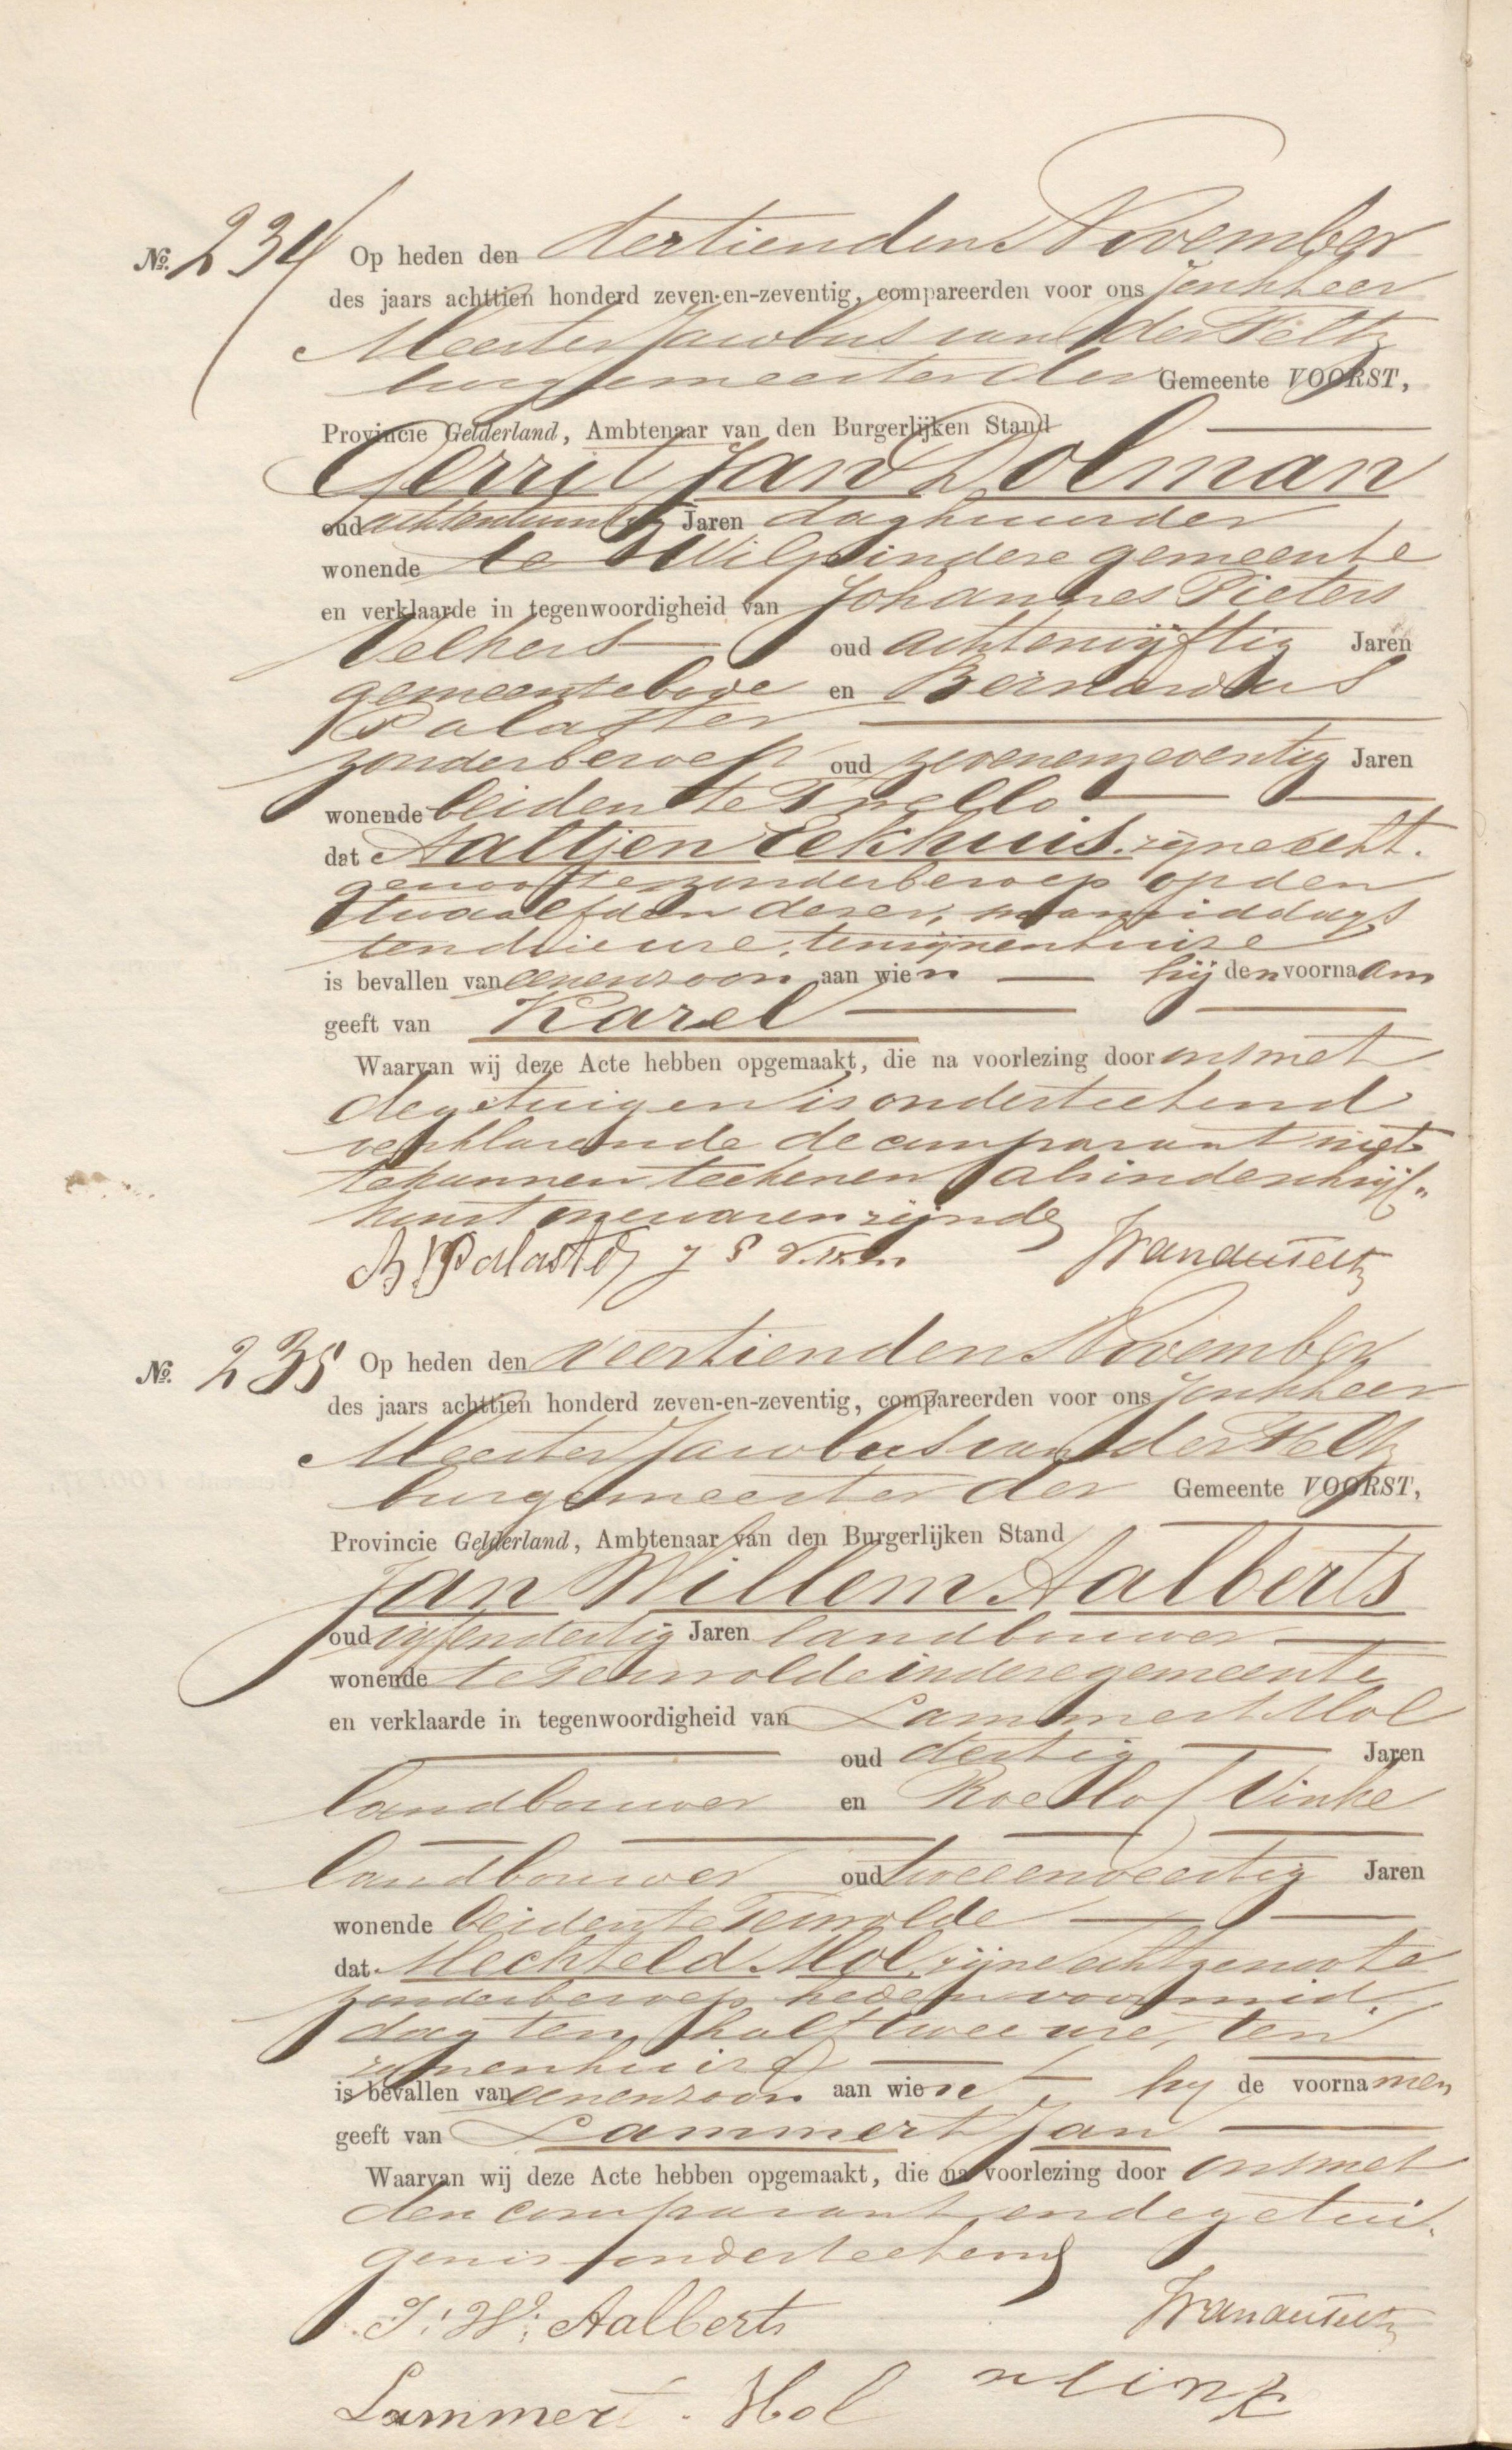 No. 234 Op heden den dertienden November
des jaars achttien honderd zeven-en-zeventig, compareerden voor ons Jonkheer
Meester Jacobus van der Feltz
burgemeester der Gemeente VOORST,
Provincie Gelderland, Ambtenaar van den Burgerlijken Stand
Gerrit Jan Dolman
oud achtentwintig Jaren daghuurder
wonende te Wilp in dese gemeente
en verklaarde in tegenwoordigheid van Johannes Pieters
Velkers oud achtenvijftig Jaren
gemeentebode en Bernardus
Palaster
zonder beroep oud zevenenzeventig Jaren
wonende beiden te Twello
dat Aaltjen Eekhuis zijne echt-
genoote zonder beroep op den
twaalfden dezer, namiddags
ten drie ure, ten zijnen huize
is bevallen van eenen zoon aan wien hij den voornaam
geeft van Karel
Waarvan wij deze Acte hebben opgemaakt, die na voorlezing door ons met
de getuigen is onderteekend
verklarende de comparant niet
te kunnen teekenen als in de schrijf-
kunst onervaren zijnde
B Palaster J P Jvanderfeltz
No. 235 Op heden den veertienden November
des jaars achttien honderd zeven-en-zeventig, compareerden voor ons Jonkheer
Meester Jacobus van der Feltz
burgemeester der Gemeente VOORST,
Provincie Gelderland, Ambtenaar van den Burgerlijken Stand
Jan Willem Aalberts
oud vijfendertig Jaren landbouwer
wonende te Terwolde in dese gemeente
en verklaarde in tegenwoordigheid van Lammert Mol
oud dertig Jaren
landbouwer en Roelof Vinke
landbouwer oud tweeenveertig Jaren
wonende beiden te Terwolde
dat Mechteld Mol, zijne echtgenoote
zonder beroep heden voormid-
dag ten half twee ure, ten
zijnen huize
is bevallen van eenen zoon aan wien hij de voornamen
geeft van Lammert Jan
Waarvan wij deze Acte hebben opgemaakt, die na voorlezing door ons met
den comparant en de getui-
gen is onderteekend
J. W. Aalberts Jvanderfeltz
Lammert Mol